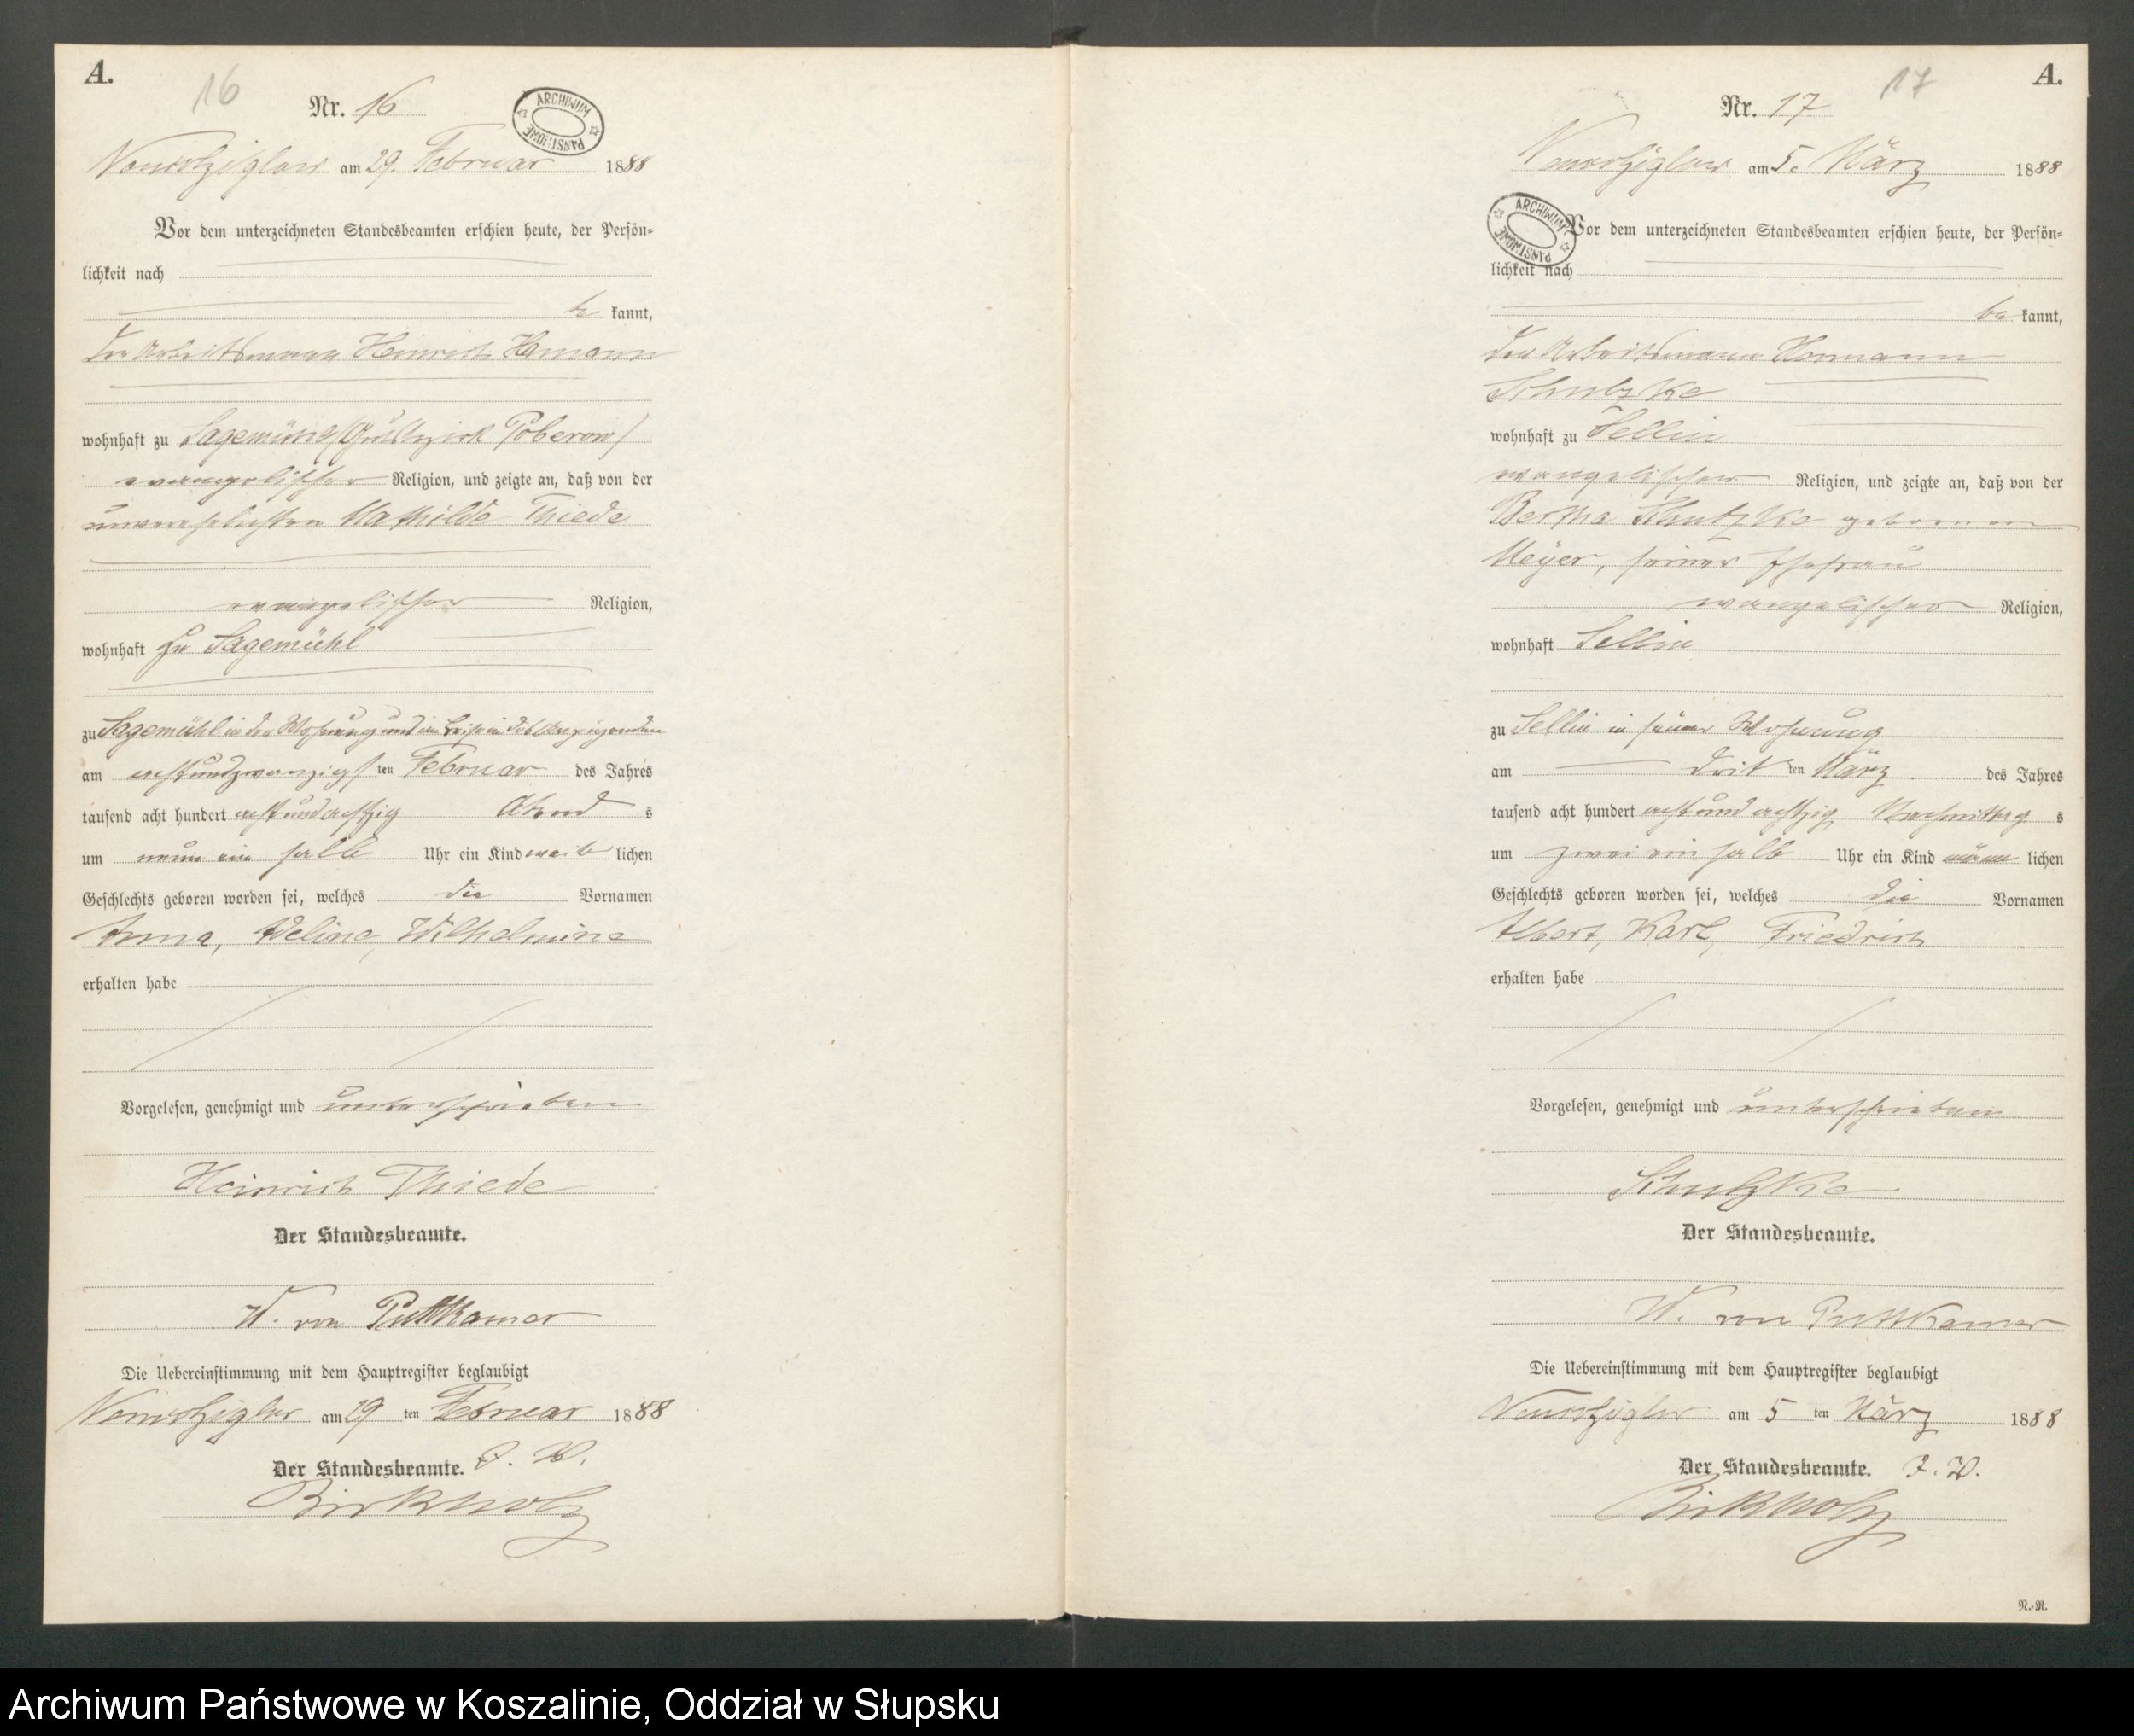 A.
16
Nr. 16
ARCHIWUM PAŃSTWOWE
am 29. Februar 1888
Vor dem unterzeichneten Standesbeamten erschien heute, der Persön-
lichkeit nach
be kannt,
der Arbeitsmann Heinrich Hemann
wohnhaft zu Sagemühl (Gutsbezirk Poberow)
evangelischer Religion, und zeigte an, daß von der
unverehelichten Mathilde Thiede
evangelischer Religion,
wohnhaft zu Sagemühl
zu Sagemühl in der Wohnung und im Beisein des Anzeigenden
am achtundzwanzigs ten Februar des Jahres
tausend acht hundert achtundachtzig Abend s
um neun ein halb Uhr ein Kind weib lichen
Geschlechts geboren worden sei, welches die Vornamen
Anna, Wilhelmine
erhalten habe
Vorgelesen, genehmigt und unterschrieben
Heinrich Thiede
Der Standesbeamte.
W. von Puttkamer
Die Uebereinstimmung mit dem Hauptregister beglaubigt
am 29 ten Februar 1888
Der Standesbeamte. J. V.
Birkholz
A.
17
Nr. 17
ARCHIWUM PAŃSTWOWE
am 5. März 1888
Vor dem unterzeichneten Standesbeamten erschien heute, der Persön-
lichkeit nach
be kannt,
der Arbeitsmann Hermann
Schutzke
wohnhaft zu Sellin
evangelischer Religion, und zeigte an, daß von der
Bertha Schutzke geborenen
Meyer, seiner Ehefrau
evangelischer Religion,
wohnhaft Sellin
zu Sellin in seiner Wohnung
am drit ten März des Jahres
tausend acht hundert achtundachtzig Nachmittag s
um zwei ein halb Uhr ein Kind männ lichen
Geschlechts geboren worden sei, welches die Vornamen
Albert, Karl, Friedrich
erhalten habe
Vorgelesen, genehmigt und unterschrieben
Schutzke
Der Standesbeamte.
W. von Puttkamer
Die Uebereinstimmung mit dem Hauptregister beglaubigt
am 5 ten März 1888
Der Standesbeamte. J. V.
Birkholz
N.-N.
Archiwum Państwowe w Koszalinie, Oddział w Słupsku